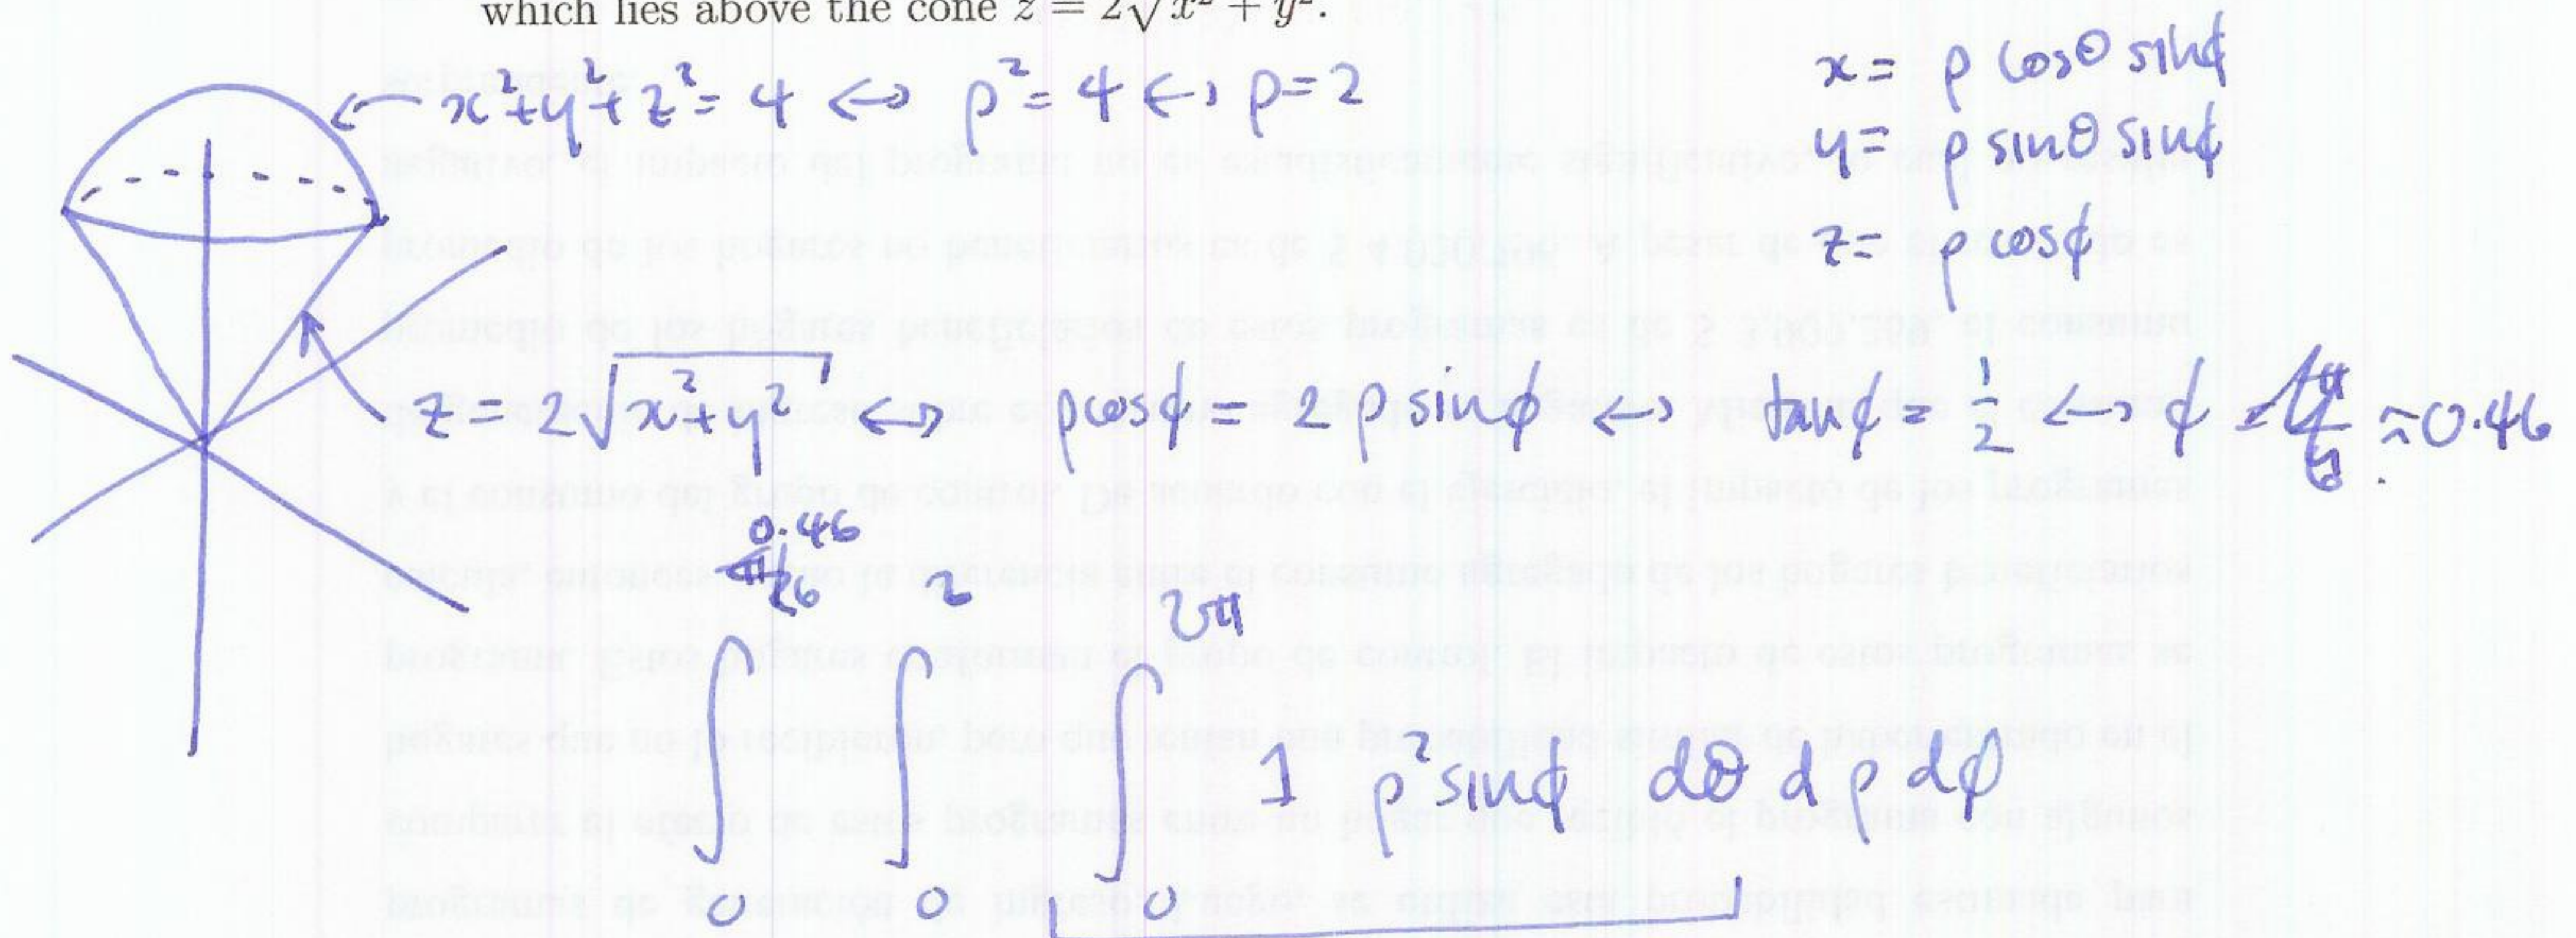 which lies above the cone z = 2√x² + y².
x²+y²+z²= 4 ↔ ρ²= 4 ↔ ρ=2
x= ρ cosθ sinϕ
y= ρ sinθ sinϕ
z= ρ cosϕ
z = 2√x²+y² ↔ ρcosϕ= 2ρ sinϕ ↔ tanϕ= 1/2 ↔ ϕ = ≈0.46
0.46 2 2π
∫ ∫ ∫ 1 ρ²sinϕ dθ dρ dϕ
0 0 0